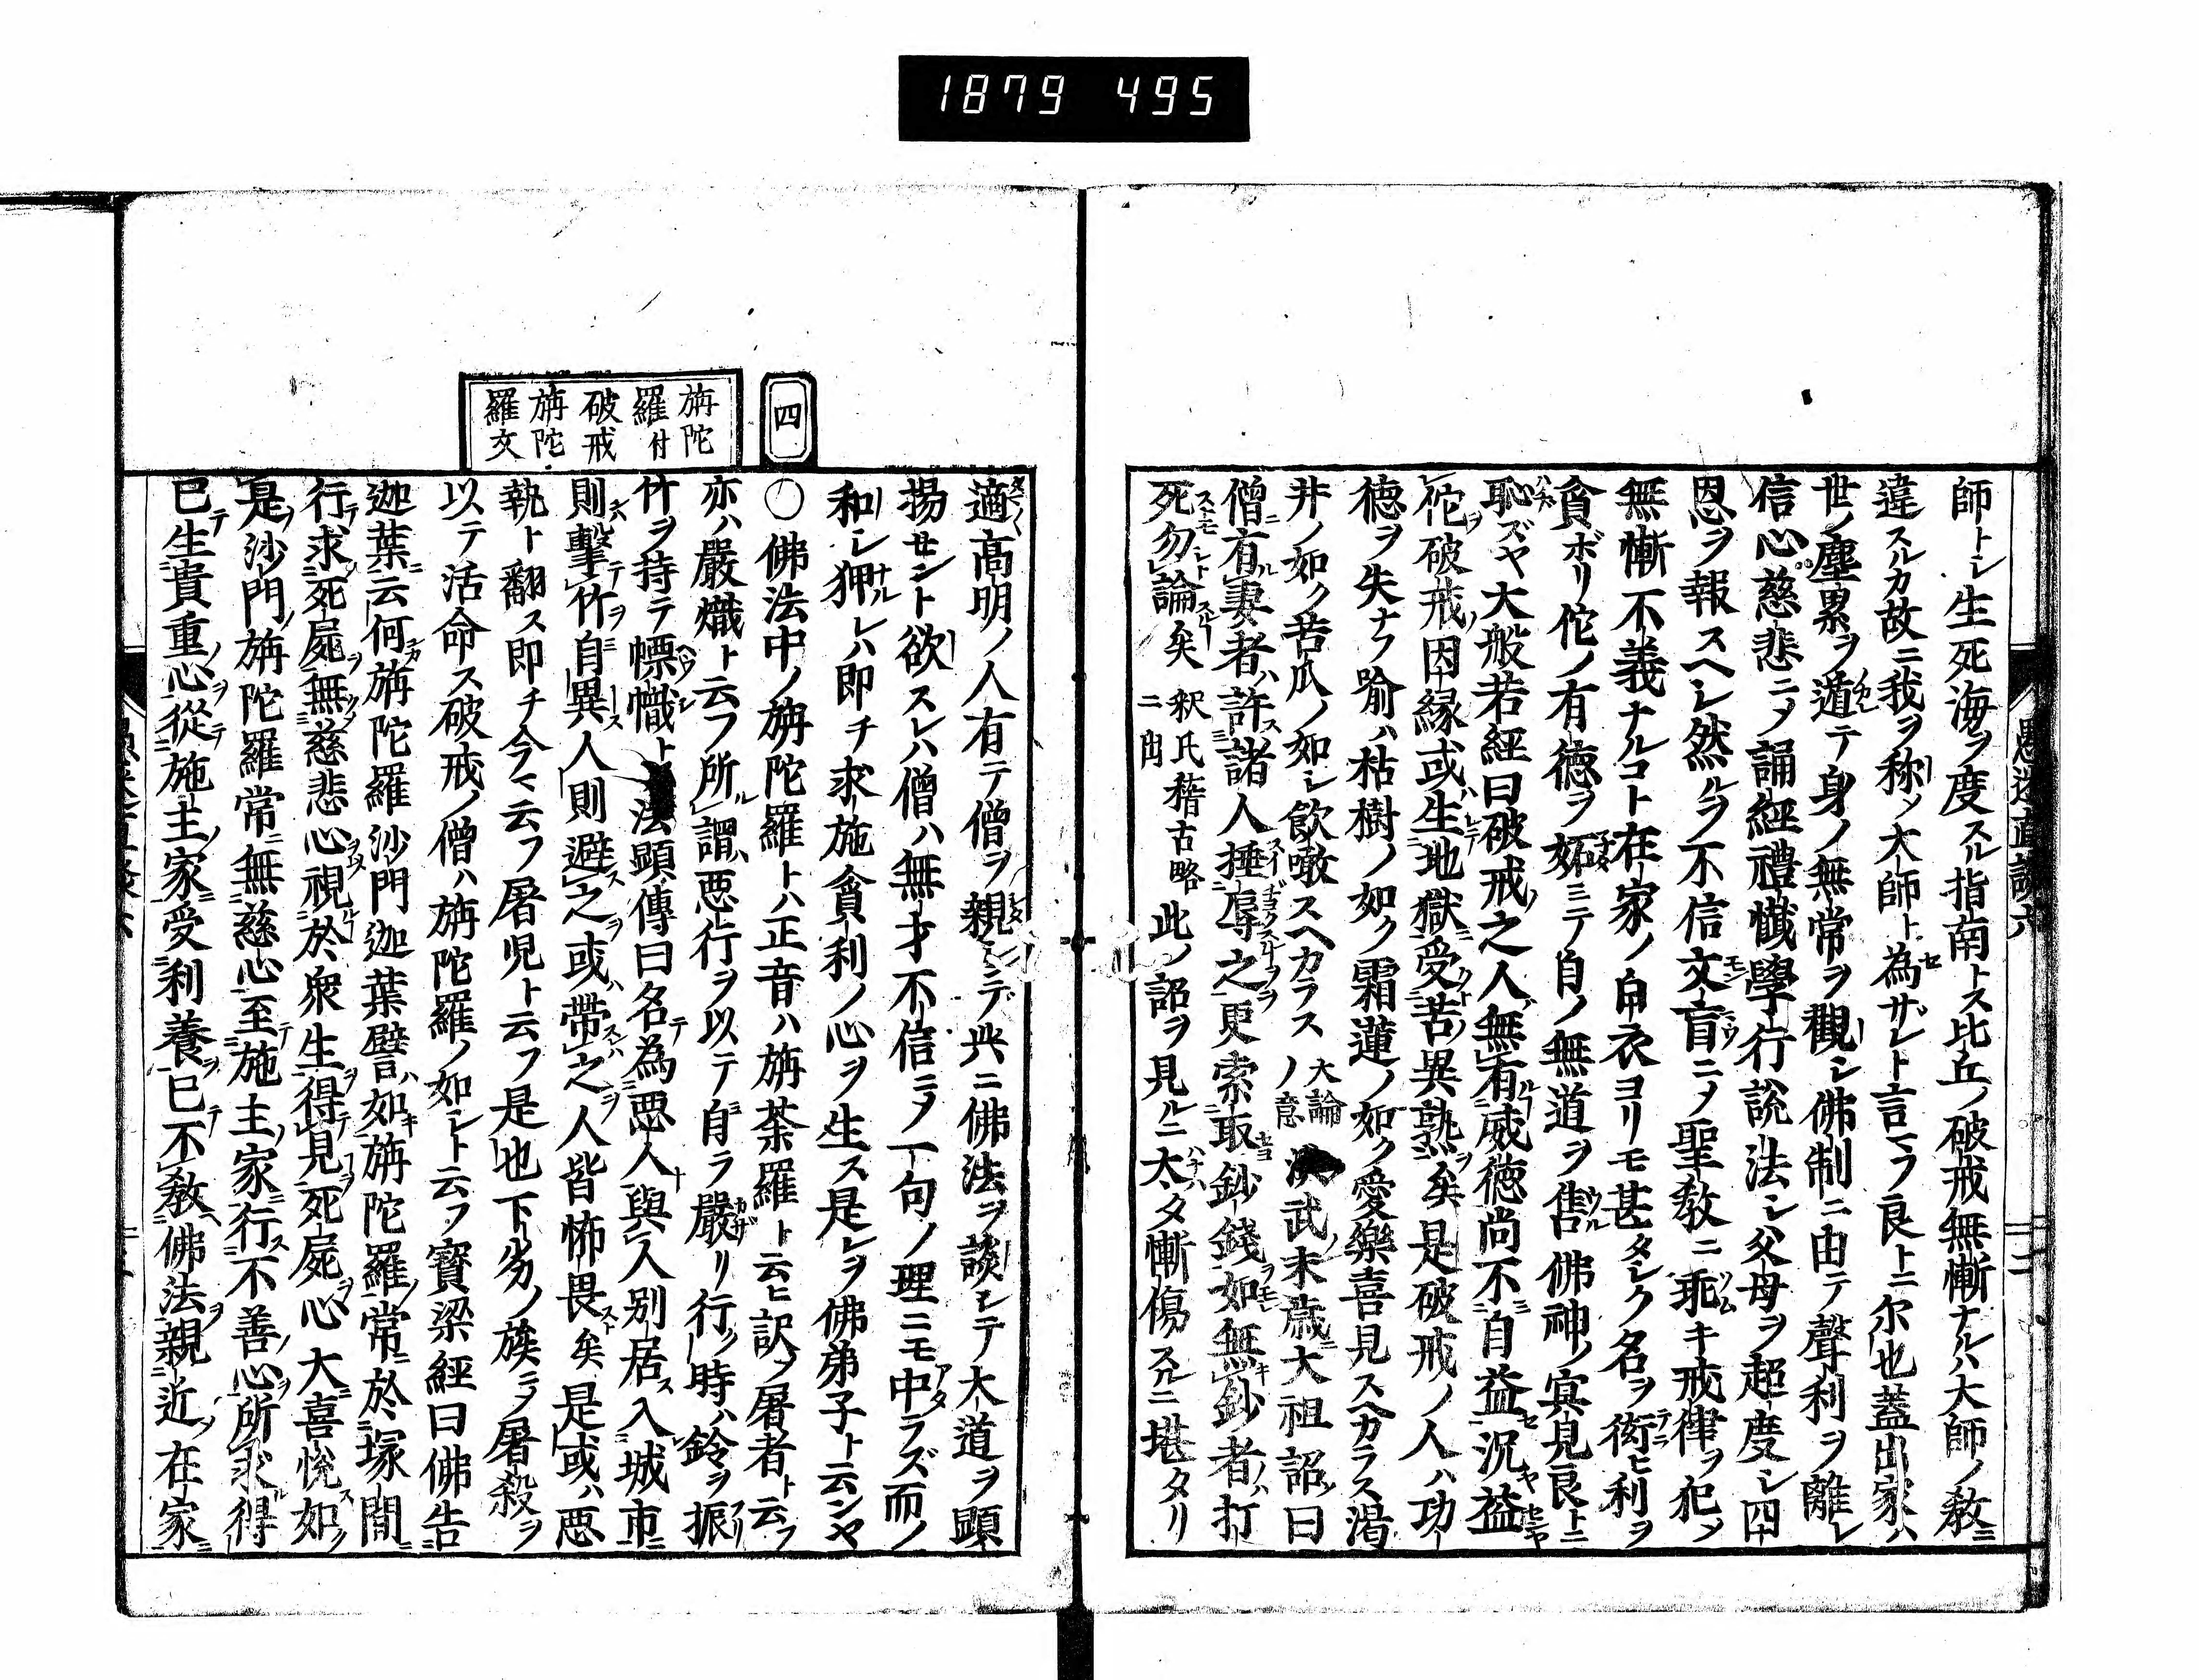 1879 495
愚迷直談六
師トシ生死海ヲ度スル指南トス比丘ノ破戒無慚ナルハ大師ノ教ニ
違スルカ故ニ我ヲ称ノ大師ト為ザレト言フ良トニ尔也蓋出家ハ
世ノ塵累ヲ遁テ身ノ無常ヲ觀シ佛制ニ由テ聲利ヲ離レ
信心慈悲ニノ誦經禮懺學行説法シ父母ヲ超度シ四
恩ヲ報スヘシ然ルヲ不信文盲ニノ聖教ニ乖キ戒律ヲ犯ノ
無慚不義ナルコト在家ノ白衣ヨリモ甚タシク名ヲ衒ヒ利ヲ
貪ボリ佗ノ有徳ヲ妬ミテ自ノ無道ヲ售佛神ノ冥見良トニ
恥ズヤ大般若經曰破戒之人無有威徳尚不自益況益
佗破戒因縁或生地獄受苦異熟矣是破戒ノ人ハ功
徳ヲ失ナフ喻ハ枯樹ノ如ク霜蓮ノ如ク愛樂喜見スヘカラス渇
井ノ如ク苦瓜ノ如シ飲噉スヘカラス 大論ノ意 武末歳大祖詔曰
僧有妻者許諸人捶辱之更索取鈔錢如無鈔者打
死勿論矣 釈氏稽古略ニ出 此ノ詔ヲ見ルニ太タ慚傷スルニ堪タリ
適高明ノ人有テ僧ヲ親ミテ興ニ佛法ヲ談シテ大道ヲ顕
揚セント欲スレハ僧ハ無才不信ニノ一句ノ理ニモ中ラズ而ノ
和シ狎ルレハ即チ求施貪利ノ心ヲ生ス是レヲ佛弟子ト云ンヤ
四
旃陀
羅付
破戒
旃陀
羅文
〇佛法中ノ旃陀羅トハ正音ハ旃荼羅ト云ヒ訳ノ屠者ト云フ
亦ハ嚴熾ト云フ所謂悪行ヲ以テ自ラ嚴リ行ク時ハ鈴ヲ振
竹ヲ持テ幖幟ト 法顕傳曰名為悪人與人別居入城市
則擊竹自異人則避之或帶之人皆怖畏矣是或ハ悪
執ト翻ス即チ今マ云フ屠児ト云フ是也下劣ノ族ニノ屠殺ヲ
以テ活命ス破戒ノ僧ハ旃陀羅ノ如シト云フ寶梁經曰佛告
迦葉云何旃陀羅沙門迦葉譬如旃陀羅常於塚間
行求死屍無慈悲心視於衆生得見死屍心大喜悦如
是沙門旃陀羅常無慈心至施主家行不善心所求得
已生貴重心從施主家受利養已不教佛法親近在家